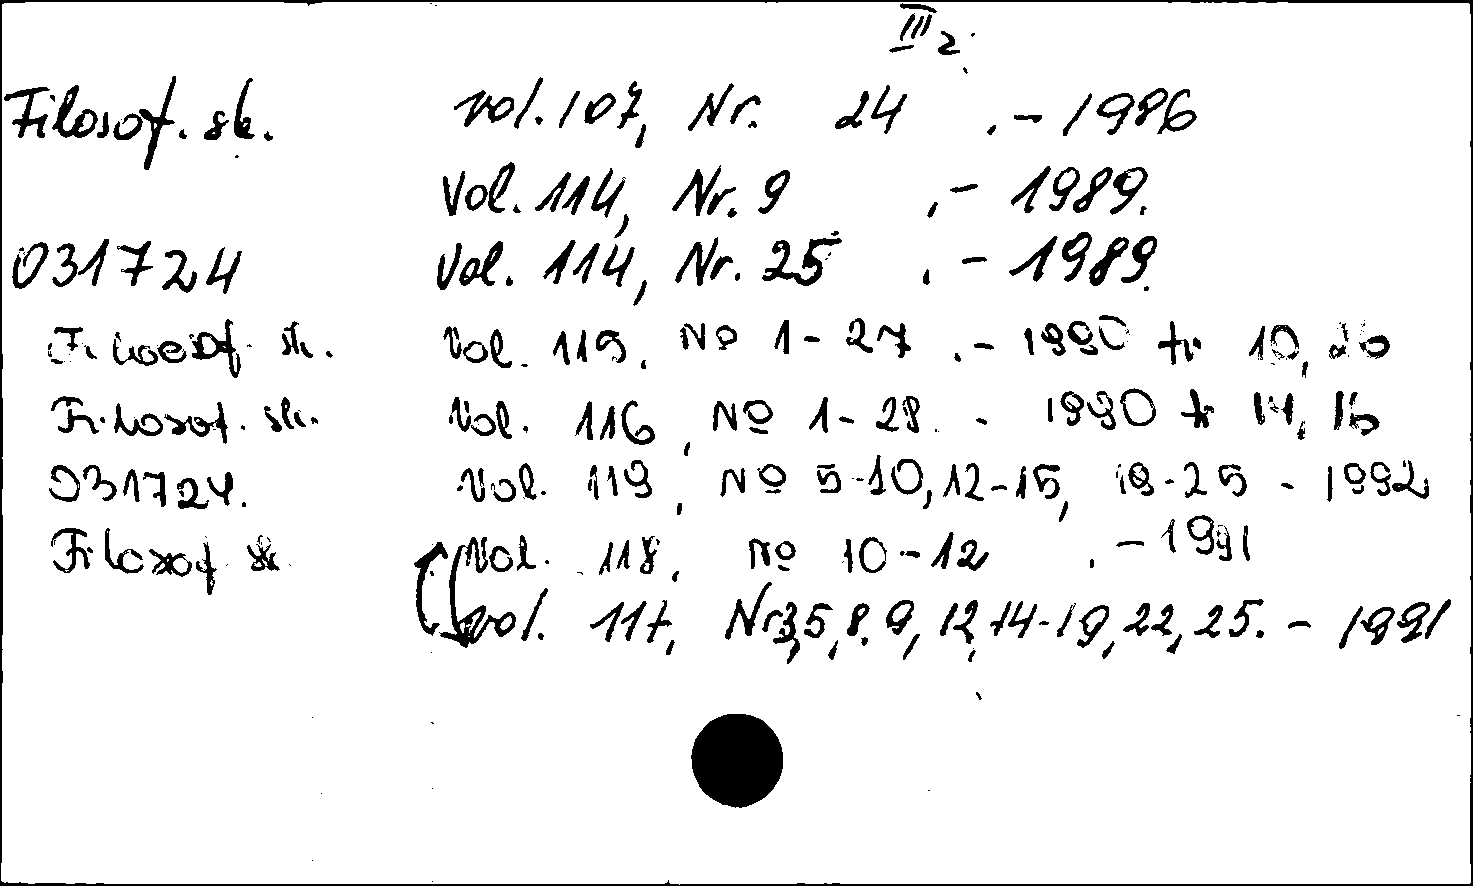 III 2.
Filosof. sk. vol. 107, Nr. 24 .- 1986
Vol. 114, Nr. 9 .- 1989.
031724 Vol. 114, Nr. 25 .- 1989.
Filosof. sk. Vol. 115. № 1-27 .- 1990 tr 10, 26
Filosof. sk. Vol. 116, № 1-28. - 1990 tr 14, 16
031724. Vol. 119, № 5-10, 12-15, 19-25 - 1992
Filozof sk Vol. 118, № 10-12 .- 1991
vol. 117, Nr 3,5,8.9, 12,14-19, 22, 25. - 1991